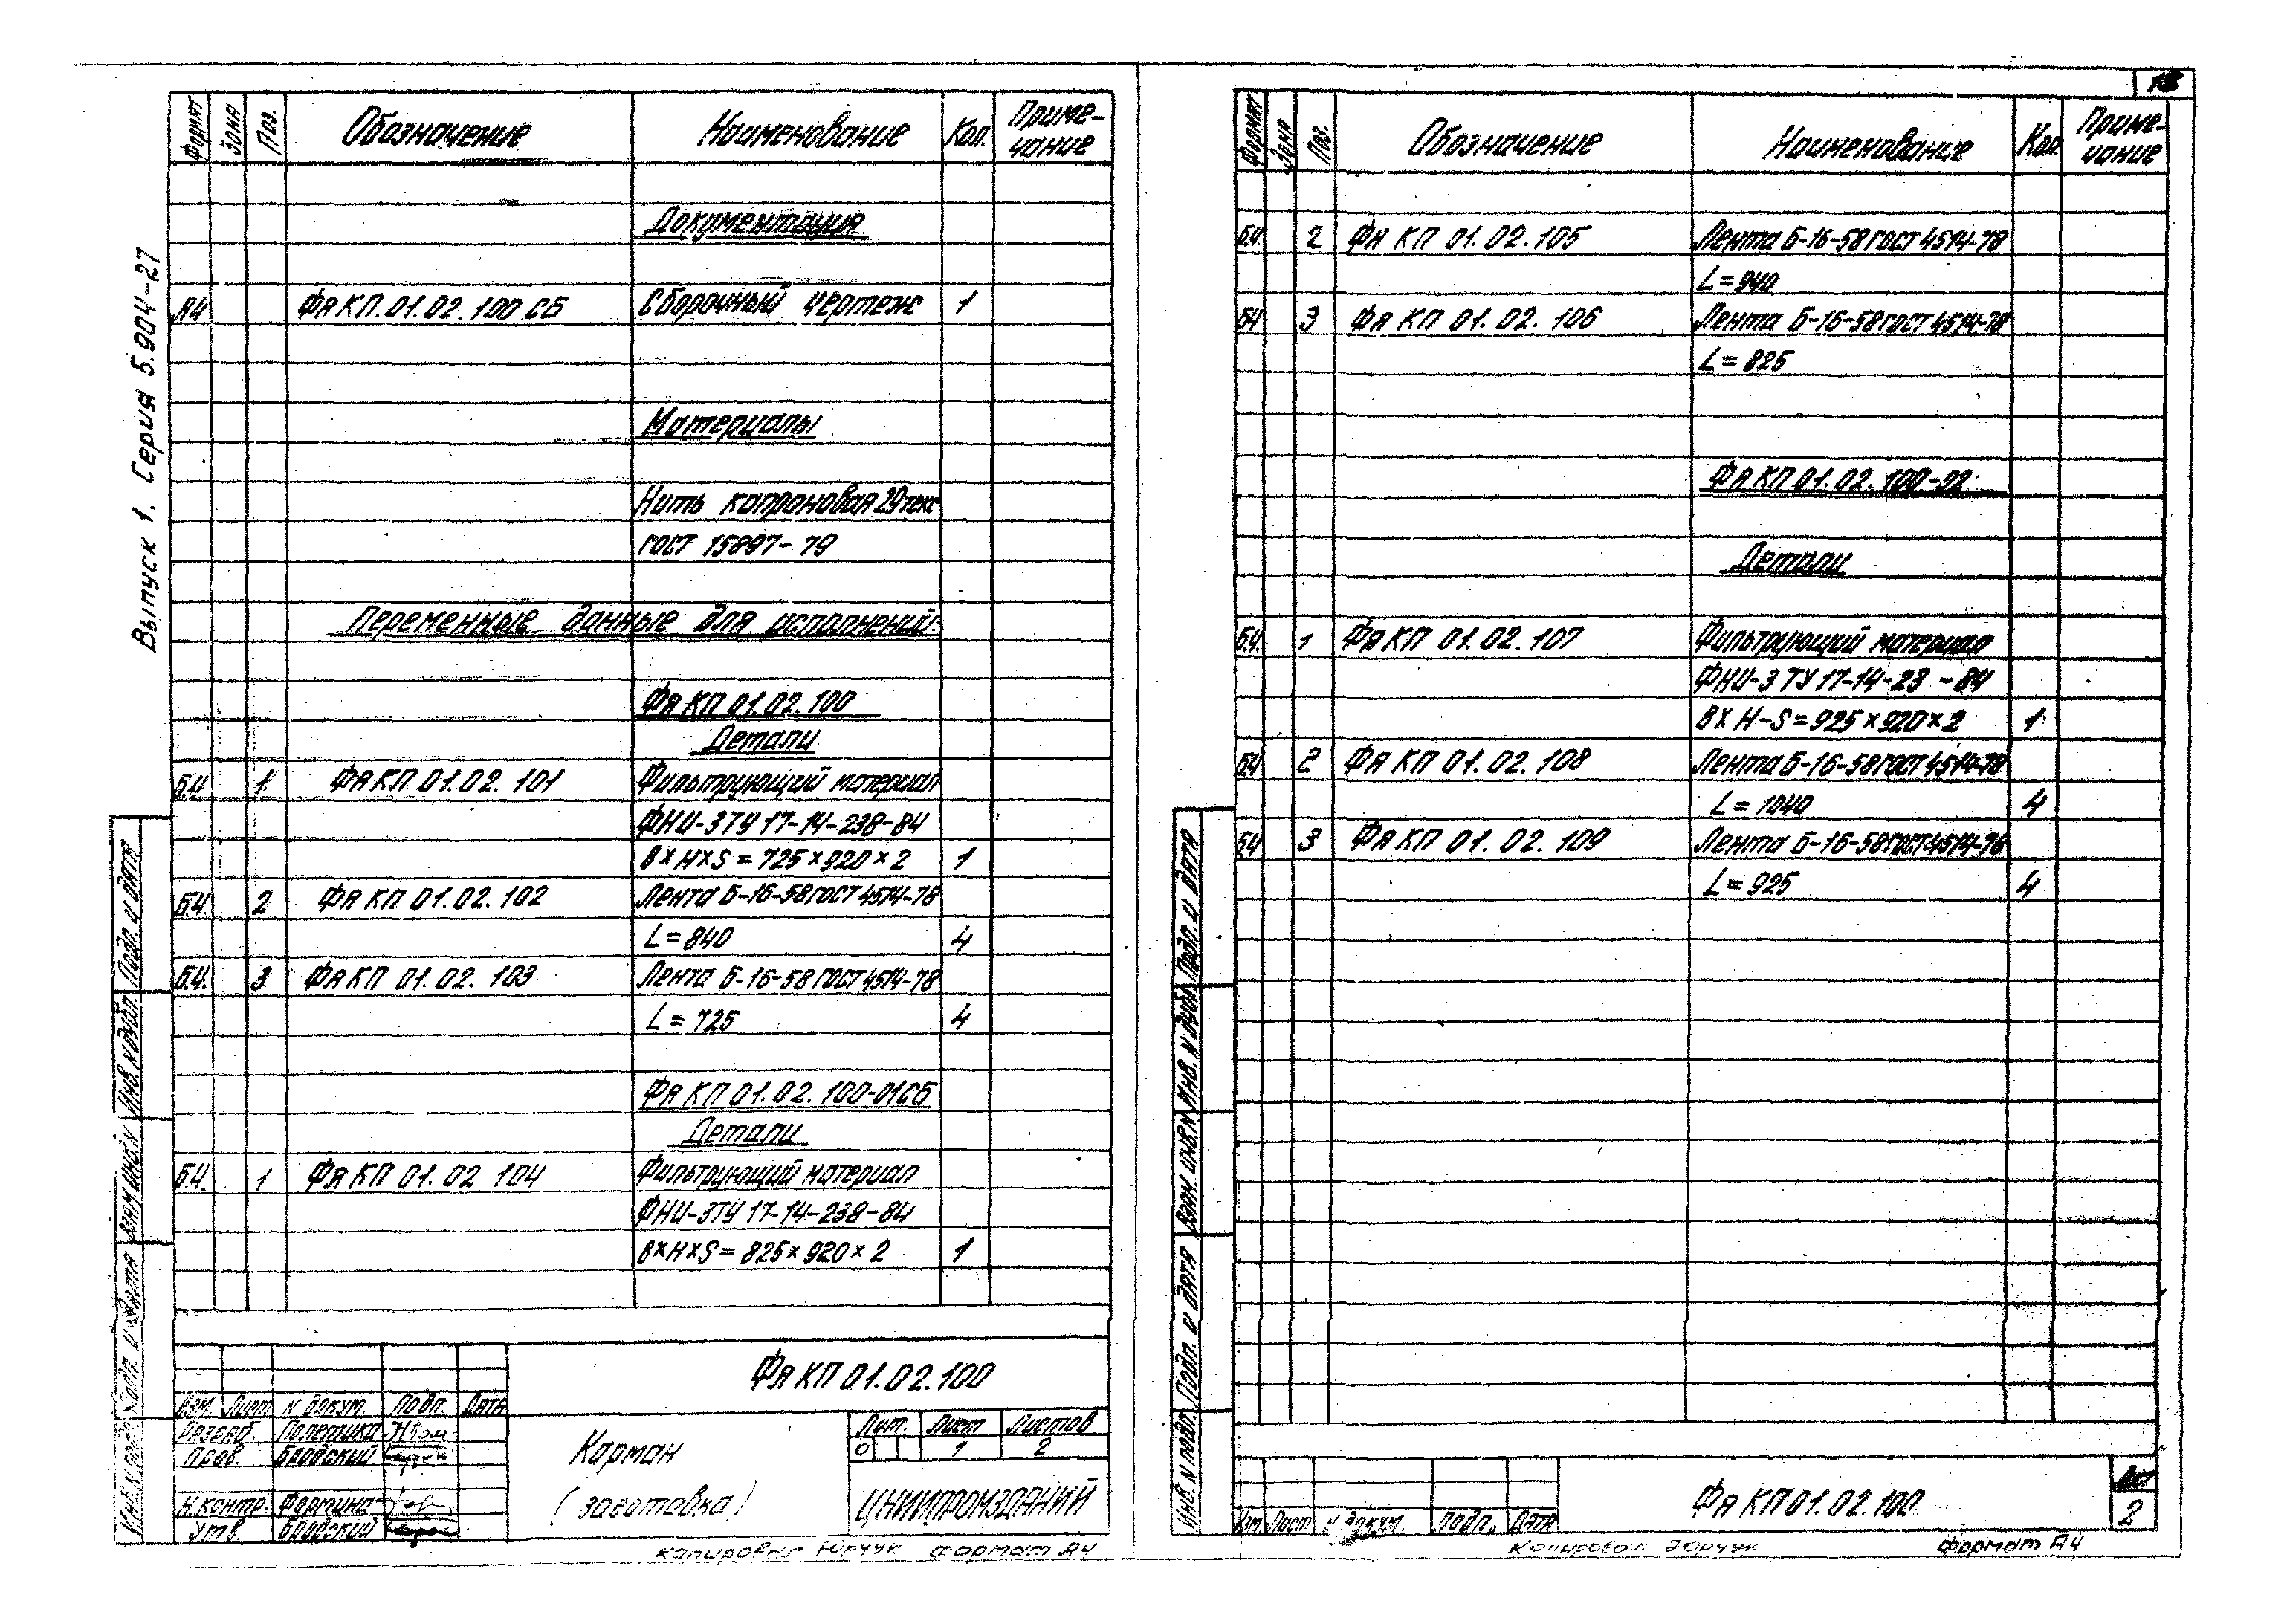 Выпуск 1. Серия 5.904-27
Формат Зона Поз. Обозначение Наименование Кол. Приме-
чание
Документация
А4 ФЯ КП.01.02.100 СБ Сборочный чертеж 1
Материалы
Нить капроновая 29 текс
ГОСТ 15897-79
Переменные данные для исполнений:
ФЯ КП 01.02.100
Детали
Б.Ч. 1 ФЯ КП 01.02.101 Фильтрующий материал
ФНИ-3 ТУ 17-14-238-84
В×Н×S = 725×920×2 1
Б.Ч. 2 ФЯ КП 01.02.102 Лента Б-16-58 ГОСТ 4514-78
L = 840 4
Б.Ч. 3 ФЯ КП 01.02.103 Лента Б-16-58 ГОСТ 4514-78
L = 725 4
ФЯ КП 01.02.100-01СБ
Детали
Б.Ч. 1 ФЯ КП 01.02 104 Фильтрующий материал
ФНИ-3ТУ 17-14-238-84
В×Н×S = 825×920×2 1
Инв. N подл. Подп. и дата Взам инв. N Инв. N дубл. Подп. и дата
ФЯ КП 01.02.100
Изм. Лист N докум. Подп. Дата
Разраб. Полетика
Пров. Бродский
Н.контр. Фомина
Утв. Бродский
Карман
(заготовка)
Лит. Лист Листов
О 1 2
ЦНИИПРОМЗДАНИЙ
Копировал Юрчук Формат А4
Формат Зона Поз. Обозначение Наименование Кол. Приме-
чание
Б.Ч. 2 ФЯ КП 01.02.105 Лента Б-16-58 ГОСТ 4514-78
L = 940
БЧ 3 ФЯ КП 01.02.106 Лента Б-16-58 ГОСТ 4514-78
L = 825
ФЯ КП 01.02.100-02
Детали
Б.Ч. 1 ФЯ КП 01.02.107 Фильтрующий материал
ФНИ-3 ТУ 17-14-23 -84
В×Н-S = 925×920×2 1
БЧ 2 ФЯ КП 01.02.108 Лента Б-16-58 ГОСТ 4514-78
L = 1040 4
БЧ 3 ФЯ КП 01.02.109 Лента Б-16-58 ГОСТ 4514-78
L = 925 4
Инв. N подл. Подп. и дата Взам. инв. N Инв. N дубл. Подп. и дата
Изм. Лист N докум. Подп. Дата
ФЯ КП 01.02.100
Лист
2
Копировал Юрчук Формат А4